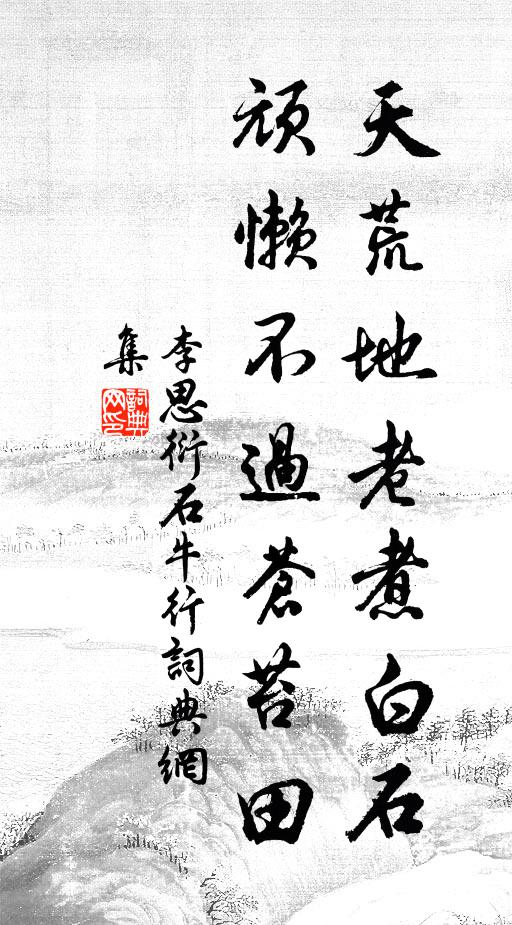 天荒地老煮白石
頑懶不過蒼苔田
李思衍石牛行詞典網
集
詞典
网印